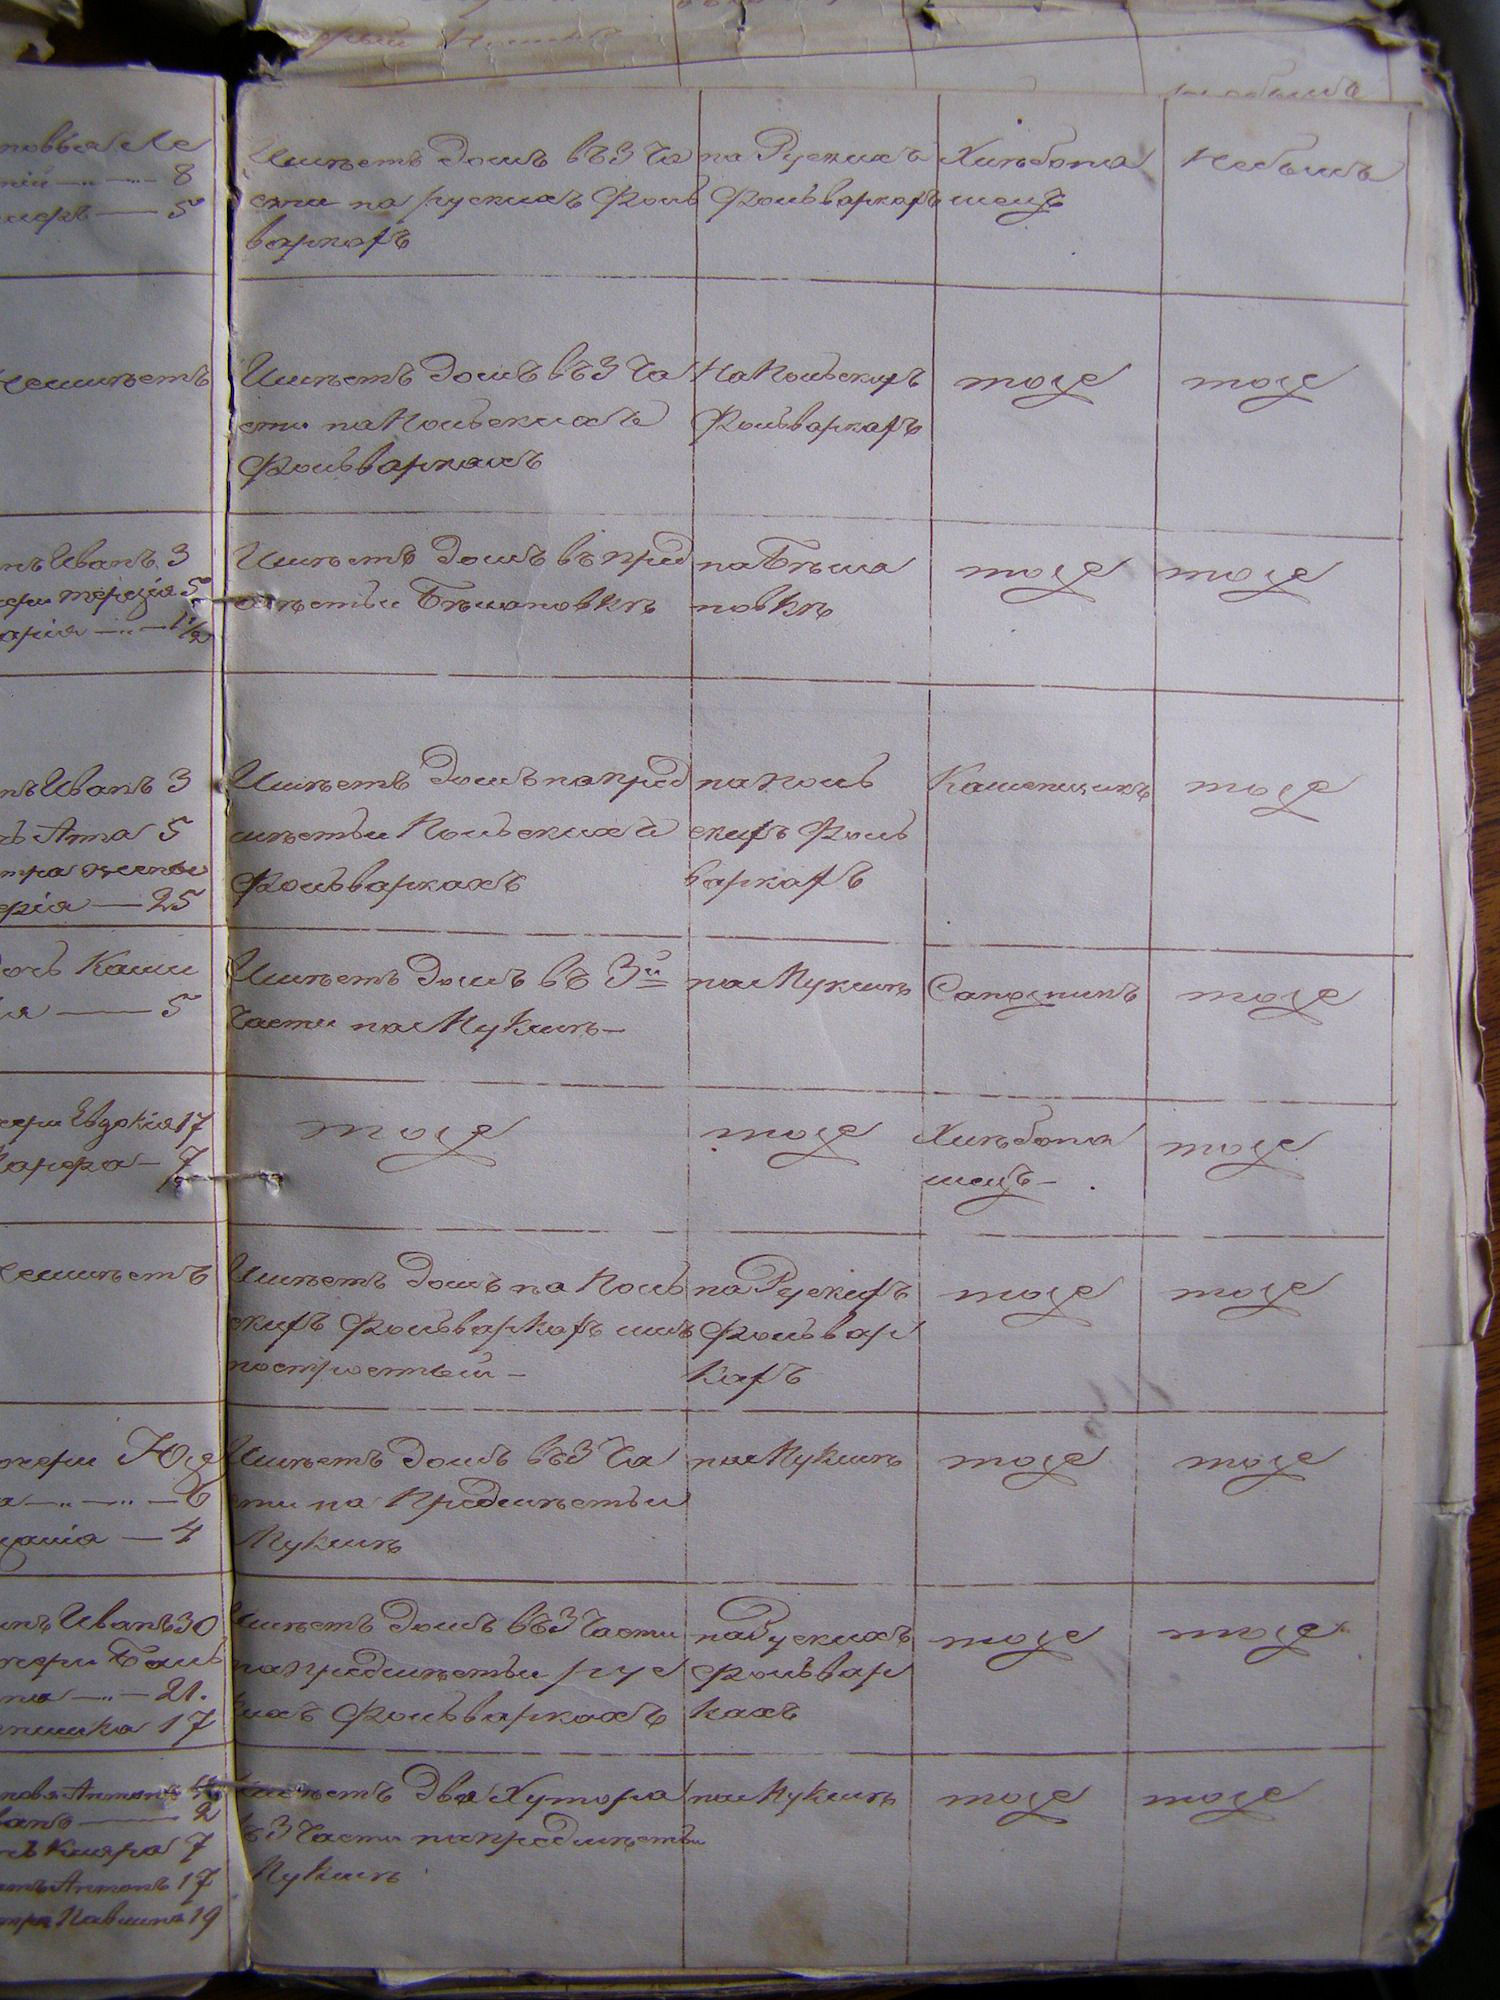 Имѣетъ домъ въ 3 ча
сти на рускихъ фоль
варкахъ
на Рускихъ
фольваркахъ
Хлѣбопа
шецъ
Небылъ
Неимѣетъ
Имѣетъ домъ въ 3 ча
сти на Польскихъ
фольваркахъ
На Польскихъ
фольваркахъ
тоже
тоже
нъ Иванъ 3
чери Терезія 5
арія — 1 1/2
Имѣетъ домъ въ пред
мѣстьи Бѣлановкѣ
на Бѣла
новкѣ
тоже
тоже
нъ Иванъ 3
Анна 5
25
Имѣетъ домъ на пред
мѣстьи Польскихъ
фольваркахъ
на Поль
скихъ фоль
варкахъ
Каменщикъ
тоже
5
Имѣетъ домъ въ 3й
части на Мукшѣ
на Мукшѣ
Сапожникъ
тоже
чери Евдокія 17
7
тоже
тоже
Хлѣбопа
шецъ
тоже
Неимѣетъ
Имѣетъ домъ на Поль
скихъ фольваркахъ имъ
построенный
на Рускихъ
фольвар
кахъ
тоже
тоже
чери Юзе
6
4
Имѣетъ домъ въ 3 ча
сти на Предмѣстьи
Мукшѣ
на Мукшѣ
тоже
тоже
нъ Иванъ 30
чери
на — 21.
17
Имѣетъ домъ въ 3 части
на предмѣстьи рус
кихъ фольваркахъ
на Рускихъ
фольвар
кахъ
тоже
тоже
новья Антонъ
ванъ — 2
7
Антонъ 17
19
Имѣетъ два Хутора
въ 3 части на предмѣстьи
Мукшѣ
на Мукшѣ
тоже
тоже